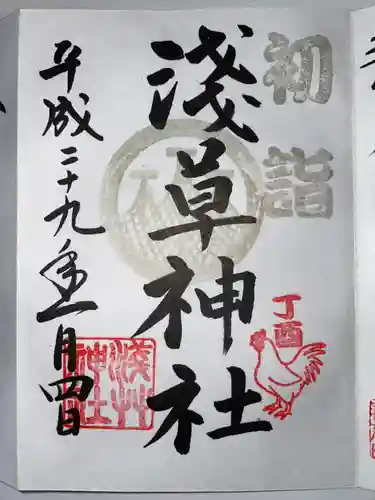 初詣
丁酉
淺草神社
平成二十九年一月四日
淺艸
神社